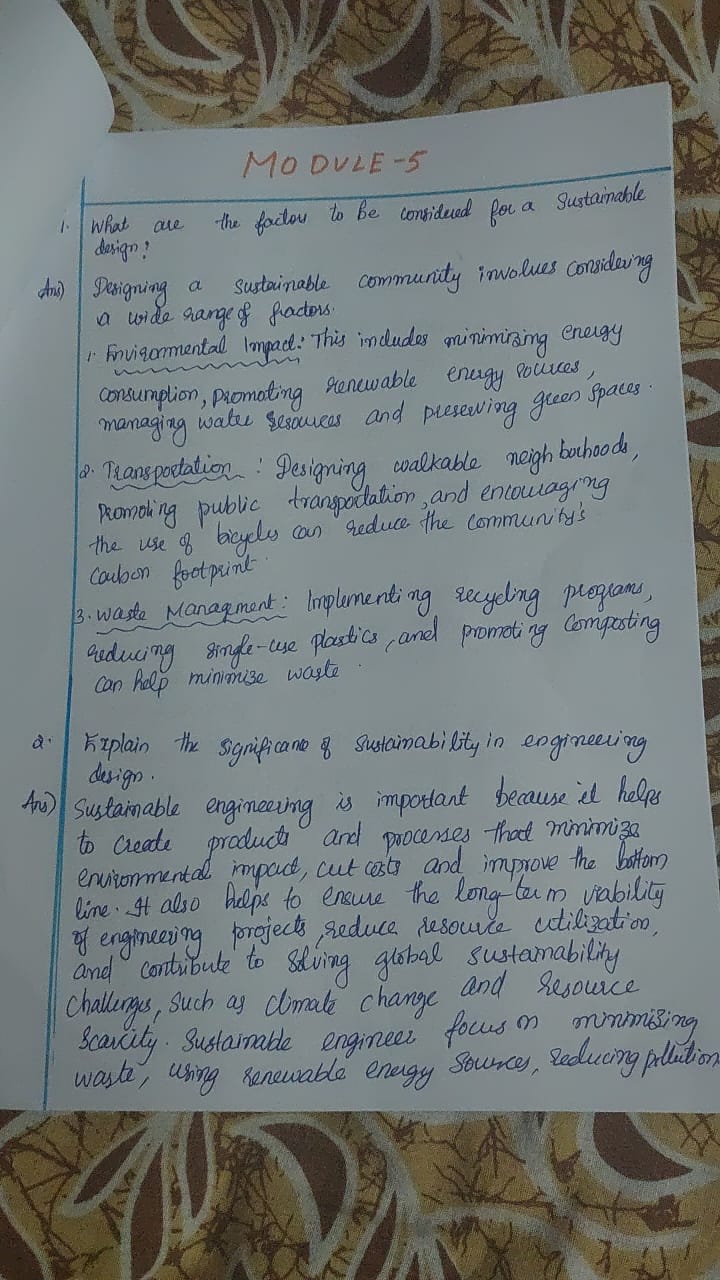 MODULE-5
1. What are the factors to be considered for a Sustainable
design?
Ans) Designing a sustainable community involves considering
a wide range of factors.
1. Environmental Impact: This includes minimizing energy
consumption, promoting renewable energy sources,
managing water resources and preserving green spaces.
2. Transportation: Designing walkable neighborhoods,
promoting public transportation, and encouraging
the use of bicycles can reduce the community's
carbon footprint
3. Waste Managment: Implementing recycling programs,
reducing single-use plastics, and promoting composting
can help minimize waste.
2. Explain the significance of sustainability in engineering
design.
Ans) Sustainable engineering is important because it helps
to create products and processes that minimize
environmental impact, cut costs and improve the bottom
line. It also helps to ensure the long-term viability
of engineering projects, reduce resource utilization,
and contribute to solving global sustainability
challenges, such as climate change and resource
scarcity. Sustainable engineer focus on minimizing
waste, using renewable energy sources, reducing pollution